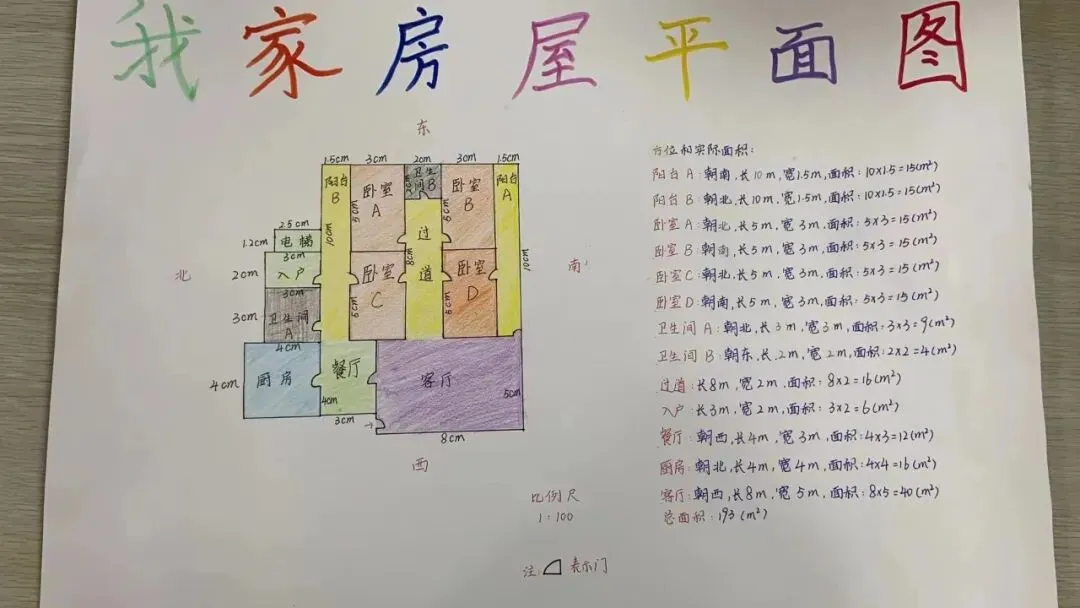 我家房屋平面图
东
1.5cm 3cm 2cm 3cm 1.5cm
阳台B
卧室A
卫生间B
卧室B
阳台A
5cm
10cm
过道
8cm
2.5cm
1.2cm
电梯
3cm
2cm
入户
北
南
卧室C
卧室D
10cm
3cm
3cm
卫生间A
4cm
4cm
厨房
餐厅
4cm
3cm
客厅
5cm
8cm
西
比例尺
1:100
注: 表示门
方位和实际面积:
阳台A:朝南,长10m,宽1.5m,面积:10×1.5=15(m²)
阳台B:朝北,长10m,宽1.5m,面积:10×1.5=15(m²)
卧室A:朝北,长5m,宽3m,面积:5×3=15(m²)
卧室B:朝南,长5m,宽3m,面积:5×3=15(m²)
卧室C:朝北,长5m,宽3m,面积:5×3=15(m²)
卧室D:朝南,长5m,宽3m,面积:5×3=15(m²)
卫生间A:朝北,长3m,宽3m,面积:3×3=9(m²)
卫生间B:朝东,长2m,宽2m,面积:2×2=4(m²)
过道:长8m,宽2m,面积:8×2=16(m²)
入户:长3m,宽2m,面积:3×2=6(m²)
餐厅:朝西,长4m,宽3m,面积:4×3=12(m²)
厨房:朝北,长4m,宽4m,面积:4×4=16(m²)
客厅:朝西,长8m,宽5m,面积:8×5=40(m²)
总面积:193(m²)